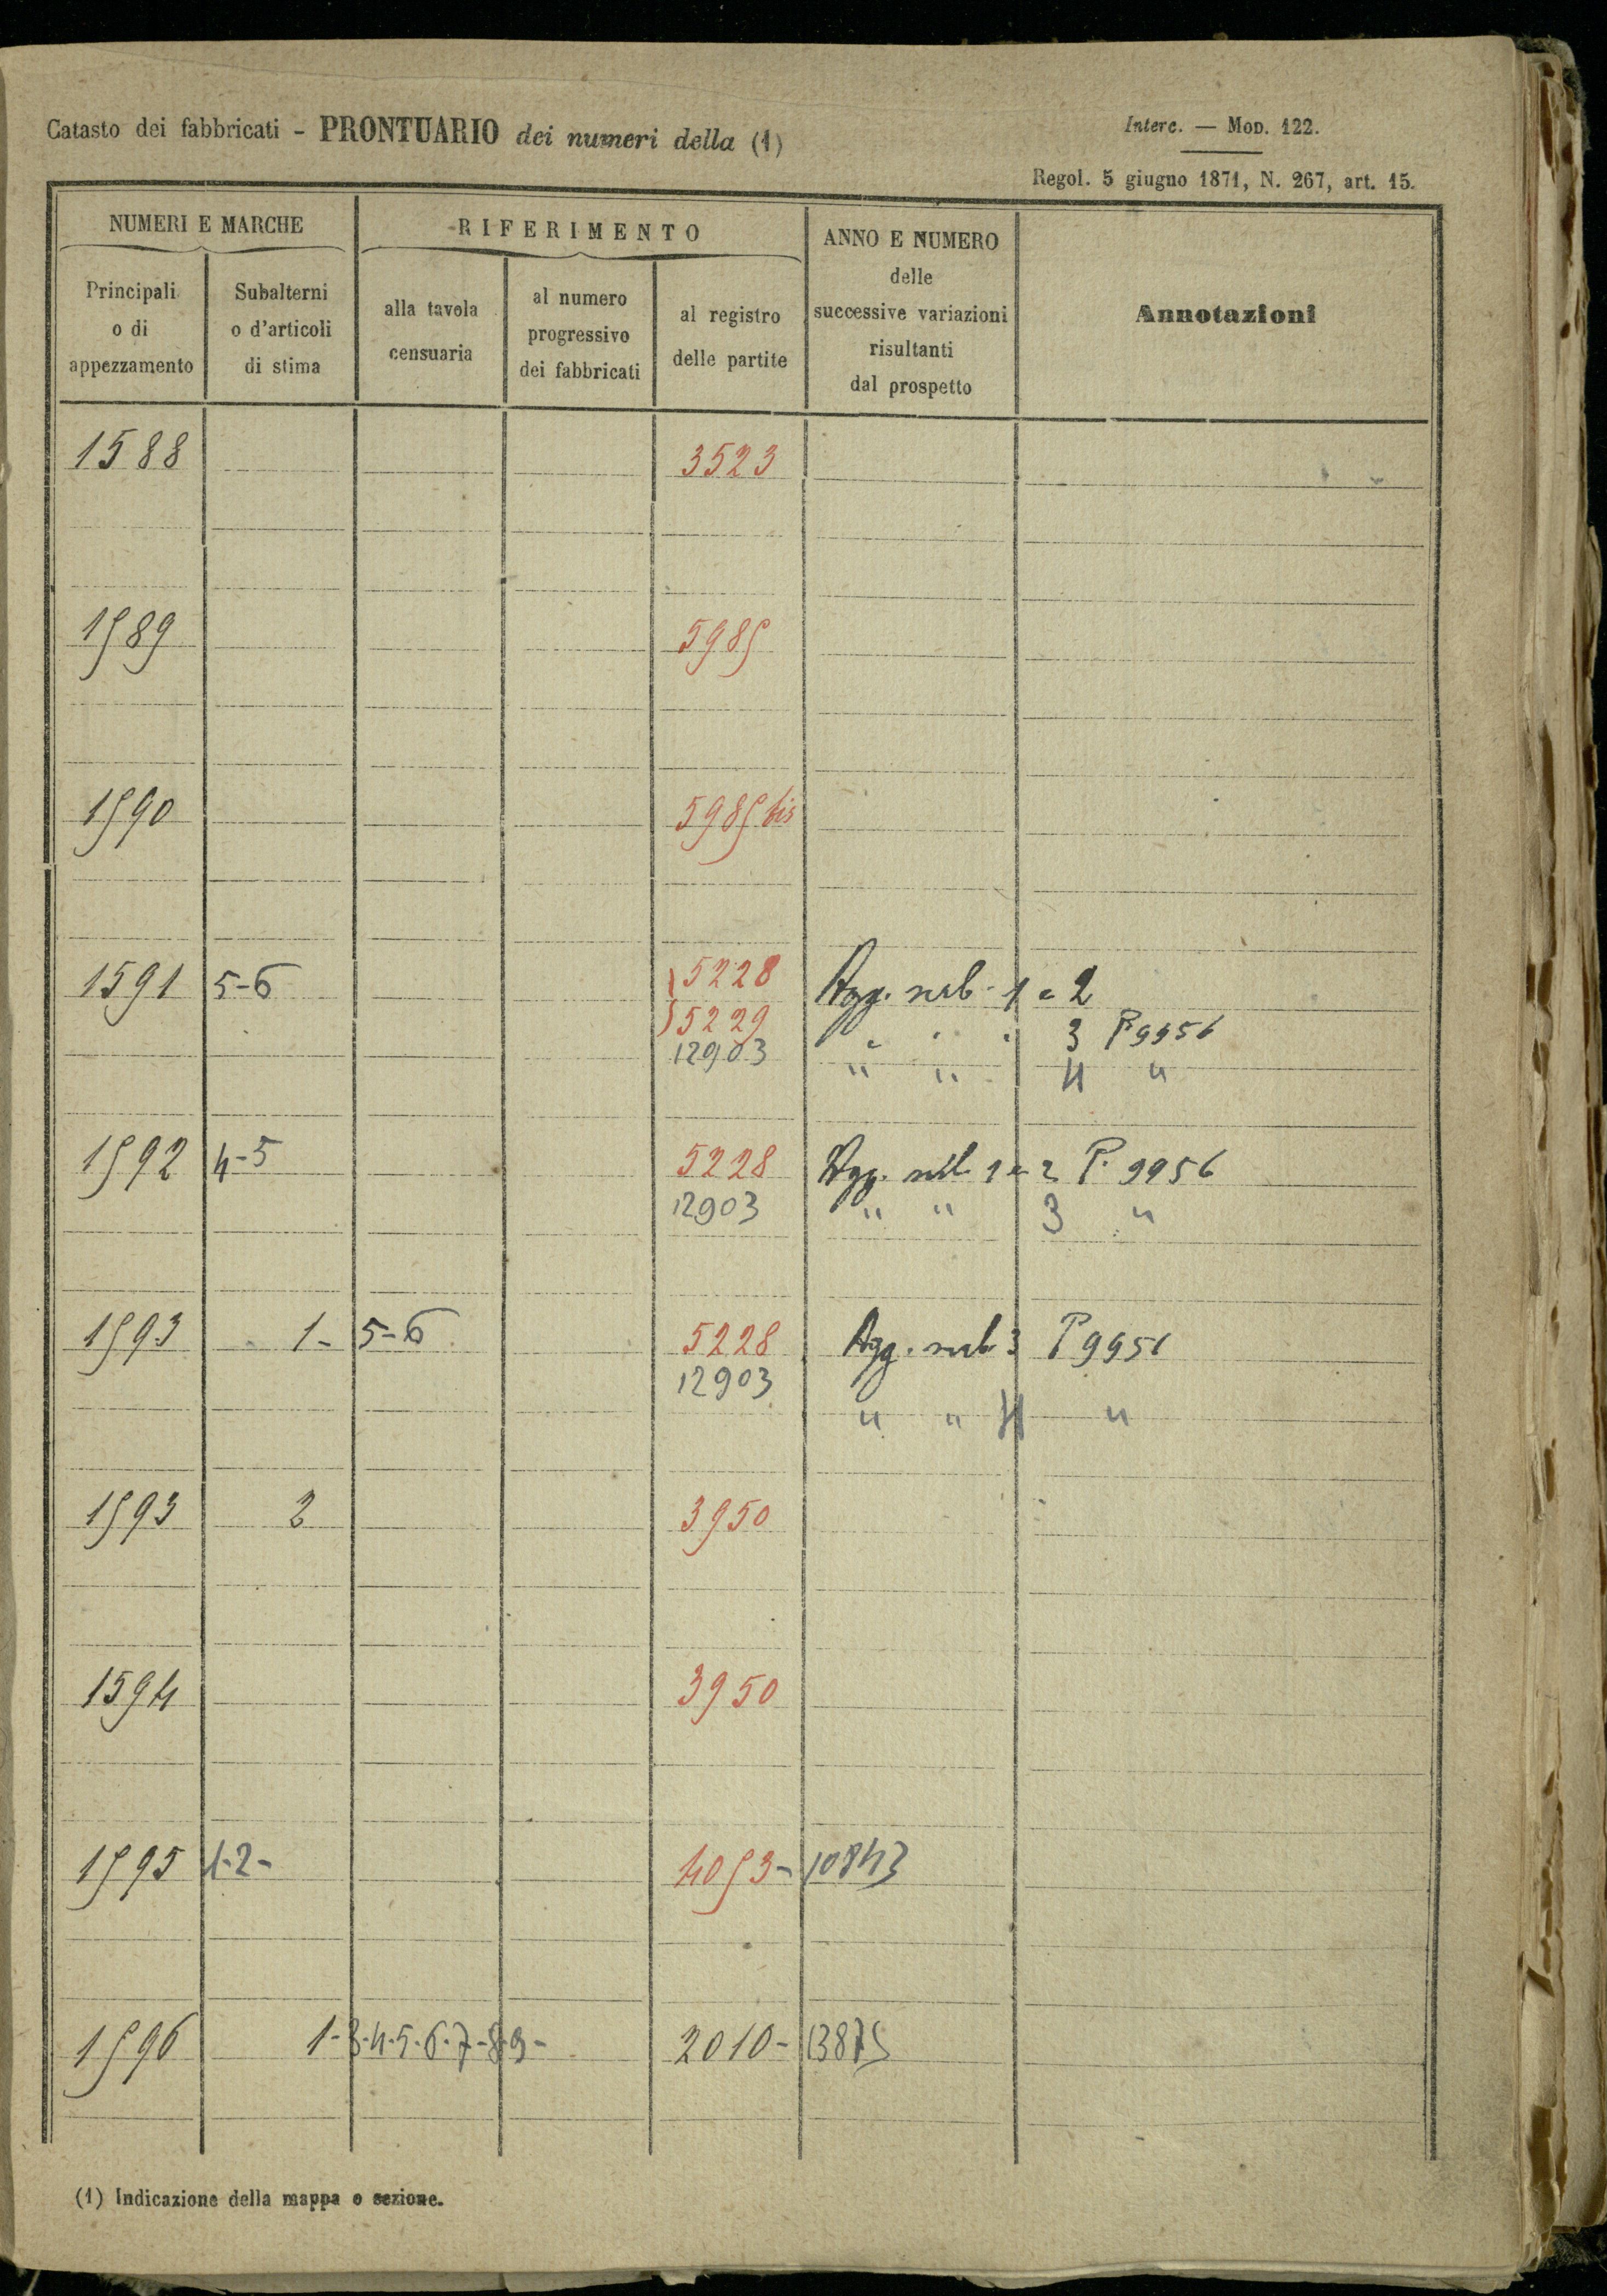 Catasto dei fabbricati - PRONTUARIO dei numeri della (1)
Interc. — Mod. 122.
Regol. 5 giugno 1871, N. 267, art. 15.
NUMERI E MARCHE
RIFERIMENTO
ANNO E NUMERO
delle
successive variazioni
risultanti
dal prospetto
Annotazioni
Principali
o di
appezzamento
Subalterni
o d'articoli
di stima
alla tavola
censuaria
al numero
progressivo
dei fabbricati
al registro
delle partite
1588 3523
1589 5985
1590 5985 bis
1591 5-6 5228 Agg. sub. 1 e 2
5229 " " " 3 P 9956
12903 " " 4 "
1592 4-5 5228 Agg. sub 1 e 2 P. 9956
12903 " " 3 "
1593 1- 5-6 5228 Agg. sub 3 P 9956
12903
" " 4 "
1593 2 3950
1594 3950
1595 1-2- 4053- 10843
1596 1-3-4-5-6-7-8-9- 2010- 13875
(1) Indicazione della mappa o sezione.